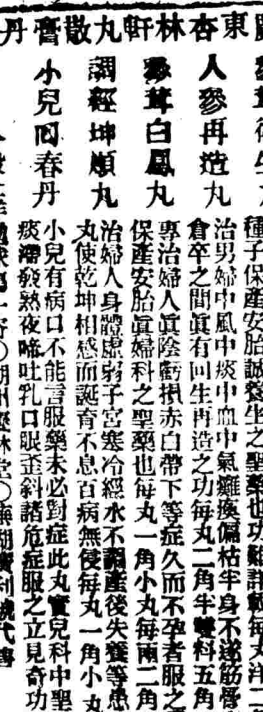 東杏林軒丸散膏丹
種子保產安胎誠養生之聖藥也功難詳載每丸洋二
人參再造丸
治男婦中風中痰中血中氣難瘓偏枯半身不遂筋骨
倉卒之間眞有回生再造之功每丸二角半雙料五角
參茸白鳳丸
專治婦人眞陰虧損赤白帶下等症久而不孕者服之
保產安胎眞婦科之聖藥也每丸一角小丸每兩二角
調經坤順丸
治婦人身體虛弱子宮寒冷經水不調產後失養等患
丸使乾坤相感而誕育不息百病無侵每丸一角小丸
小兒回春丹
小兒有病口不能言服藥未必對症此丸實兒科中聖
痰滯發熱夜啼吐乳口眼歪斜諸危症服之立見奇功